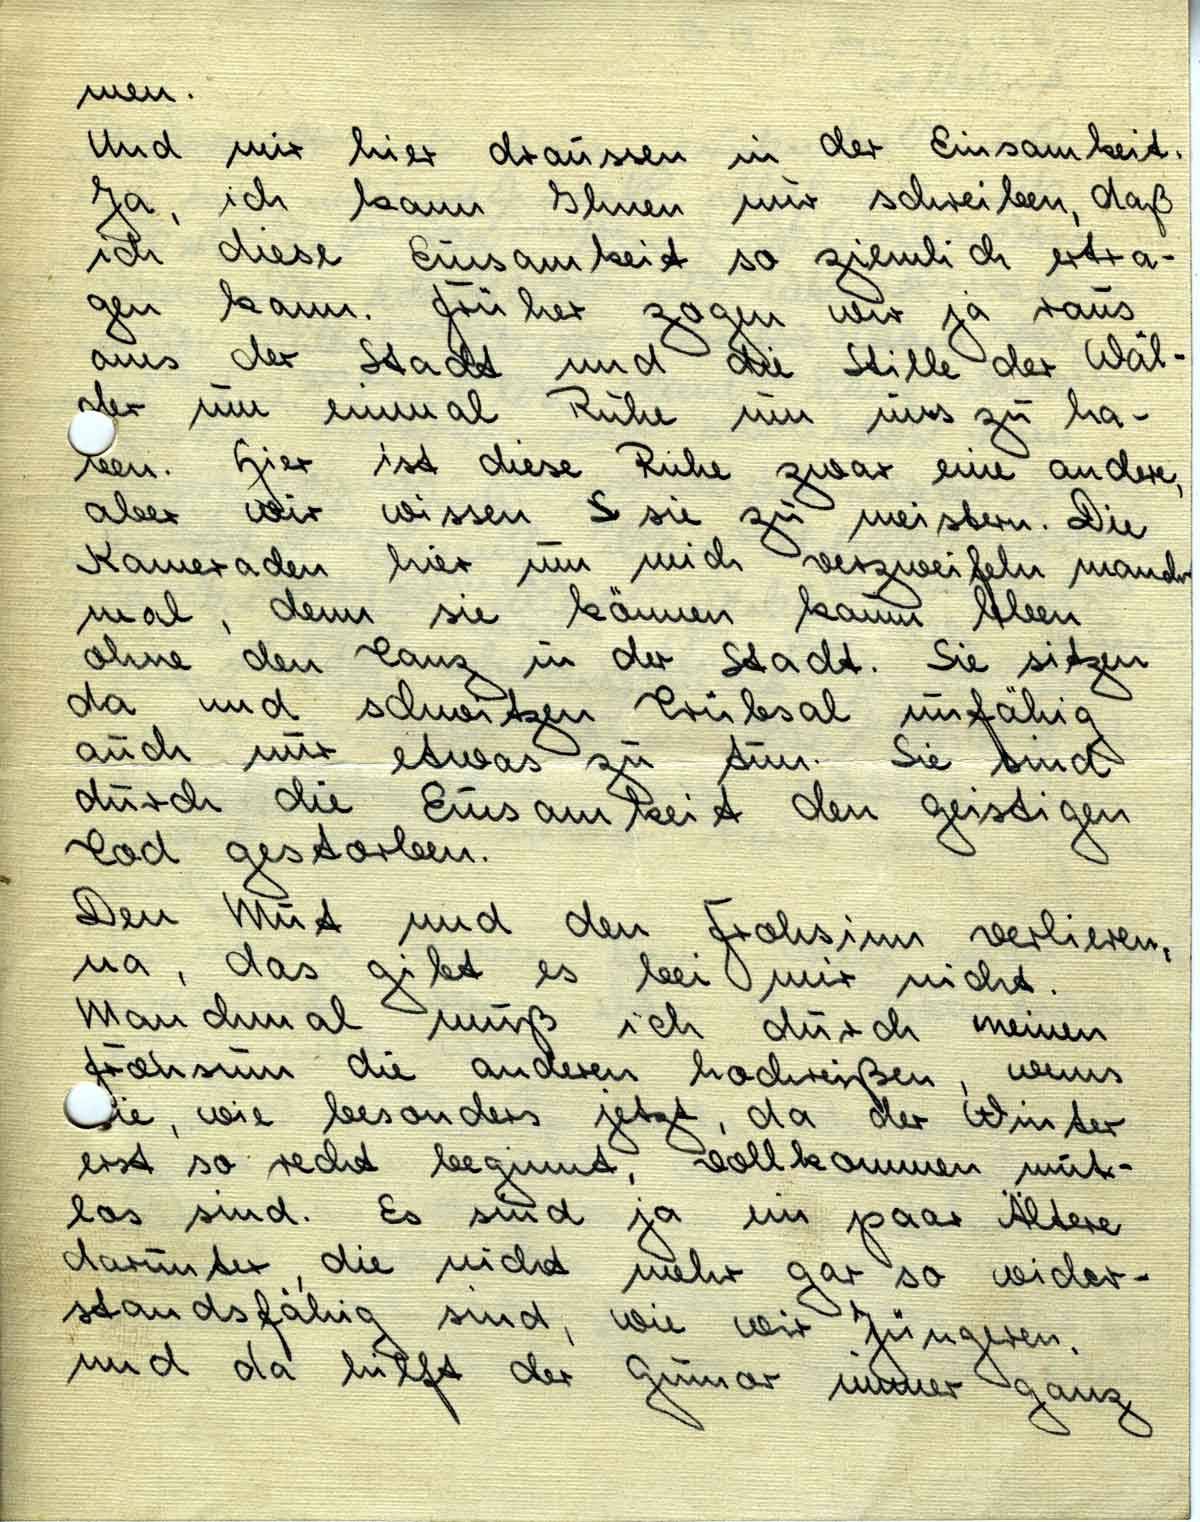 men.
Und mir hier draussen in der Einsamkeit.
Ja, ich kann Ihnen nur schreiben, daß
ich diese Einsamkeit so ziemlich ertra-
gen kann. Früher zogen wir ja raus
aus der Stadt und die Stille der Wäl-
der um einmal Ruhe um uns zu ha-
ben. Hier ist diese Ruhe zwar eine andere,
aber wir wissen S sie zu meistern. Die
Kameraden hier um mich verzweifeln manch
mal, denn sie können kaum leben
ohne den Tanz in der Stadt. Sie sitzen
da und schwitzen Trübsal unfähig
auch nur etwas zu tun. Sie sind
durch die Einsamkeit den geistigen
Tod gestorben.
Den Mut und den Frohsinn verlieren,
na, das gibt es bei mir nicht.
Manchmal muß ich durch meinen
Frohsinn die anderen hochreißen, wenns
sie, wie besonders jetzt, da der Winter
erst so recht beginnt, vollkommen mut-
los sind. Es sind ja ein paar Ältere
darunter, die nicht mehr gar so wider-
standsfähig sind, wie wir Jüngeren.
und da hilft der Humor immer ganz